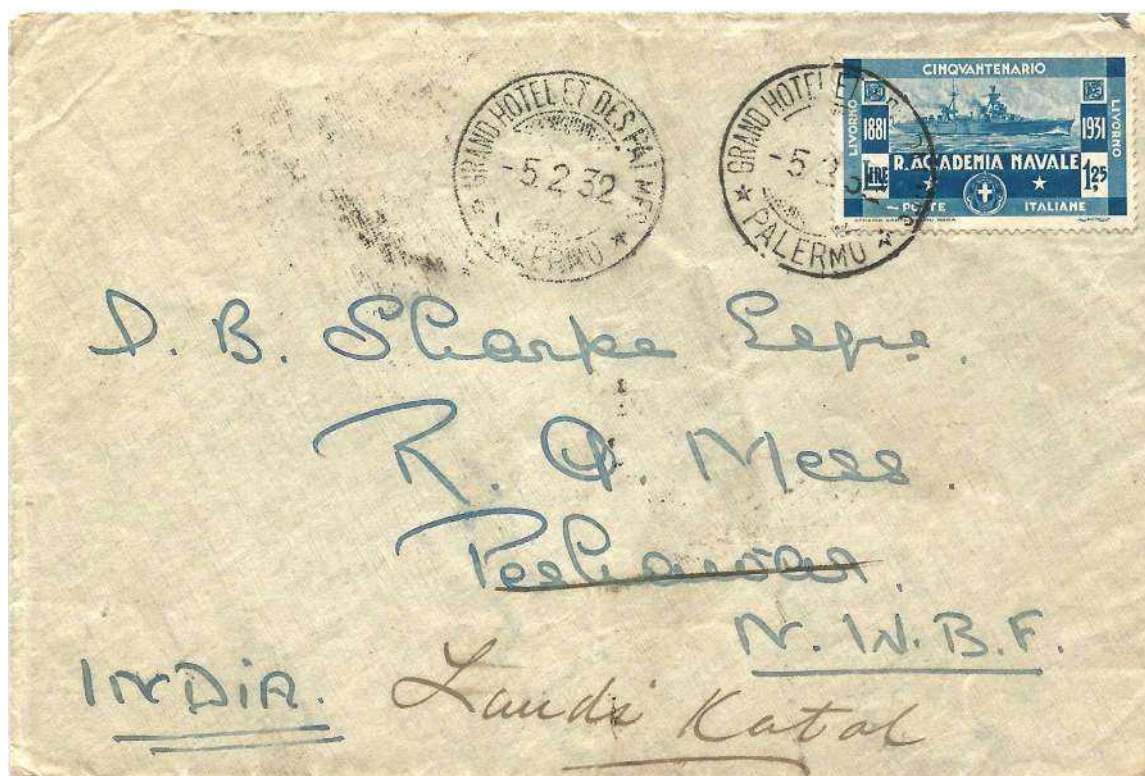 GRAND HOTEL ET DES PALMES
-5.2.32
PALERMO
GRAND HOTEL ET
-5.2.3
PALERMO
CINQVANTENARIO
LIVORNO
1881
1931
LIVORNO
R. ACCADEMIA NAVALE
LIRE
1,25
POSTE ITALIANE
D. B. Sharpe Esqre.
R. A. Mess.
Peshawar.
N. W. B. F.
INDIA.
Landi Katal